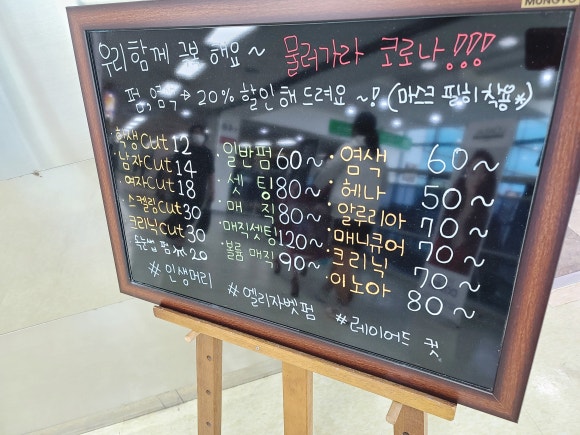 MUNGYO
우리함께 극복 해요 ~ 물러가라 코로나!!!
펌, 염색 → 20% 할인해 드려요 ~! (마스크 필히 착용*)
· 학생Cut 12
· 남자Cut 14
· 여자Cut 18
· 스켈링Cut 30
· 크리닉Cut 30
펌 커트 20
· 일반펌 60~
· 셋팅 80~
· 매직 80~
· 매직셋팅 120~
· 볼륨 매직 90~
· 염색 60~
· 헤나 50~
· 알루리아 70~
· 매니큐어 70~
· 크리닉 70~
· 이노아 80~
# 인생머리 # 엘리자벳펌 #레이어드 컷